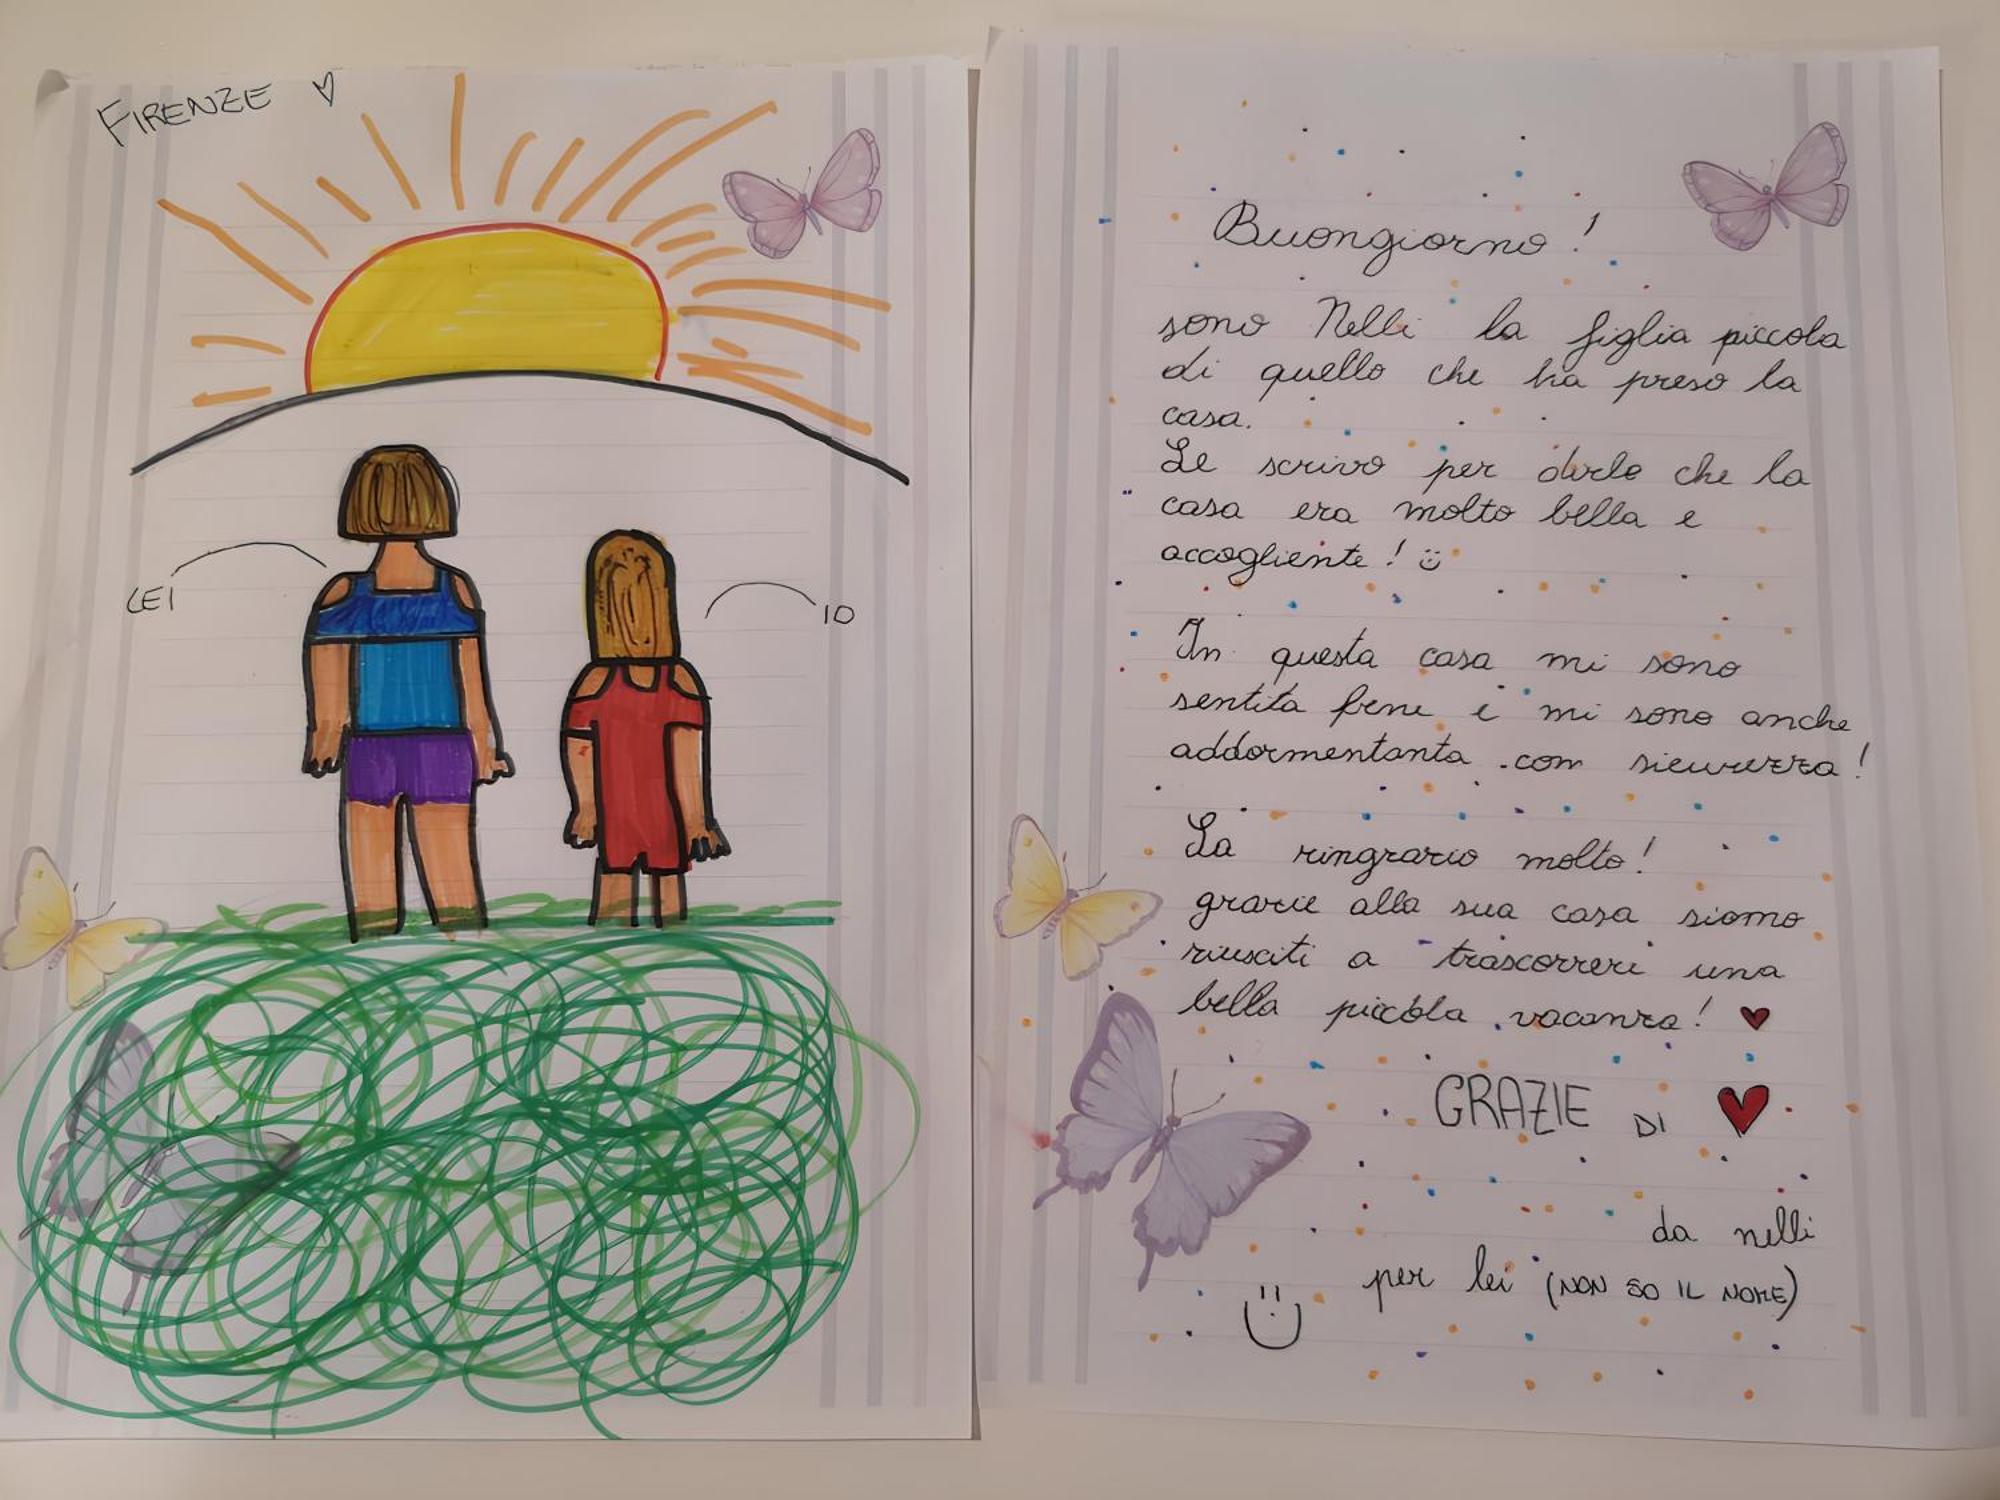 FIRENZE
LEI
IO
Buongiorno!
sono Nelli la figlia piccola
di quello che ha preso la
casa.
Le scrivo per dirle che la
casa era molto bella e
accogliente!
In questa casa mi sono
sentita bene e mi sono anche
addormentanta con sicurezza!
La ringrazio molto!
grazie alla sua casa siamo
riusciti a trascorrere una
bella piccola vacanza!
GRAZIE DI
da nelli
per lei (NON SO IL NOME)